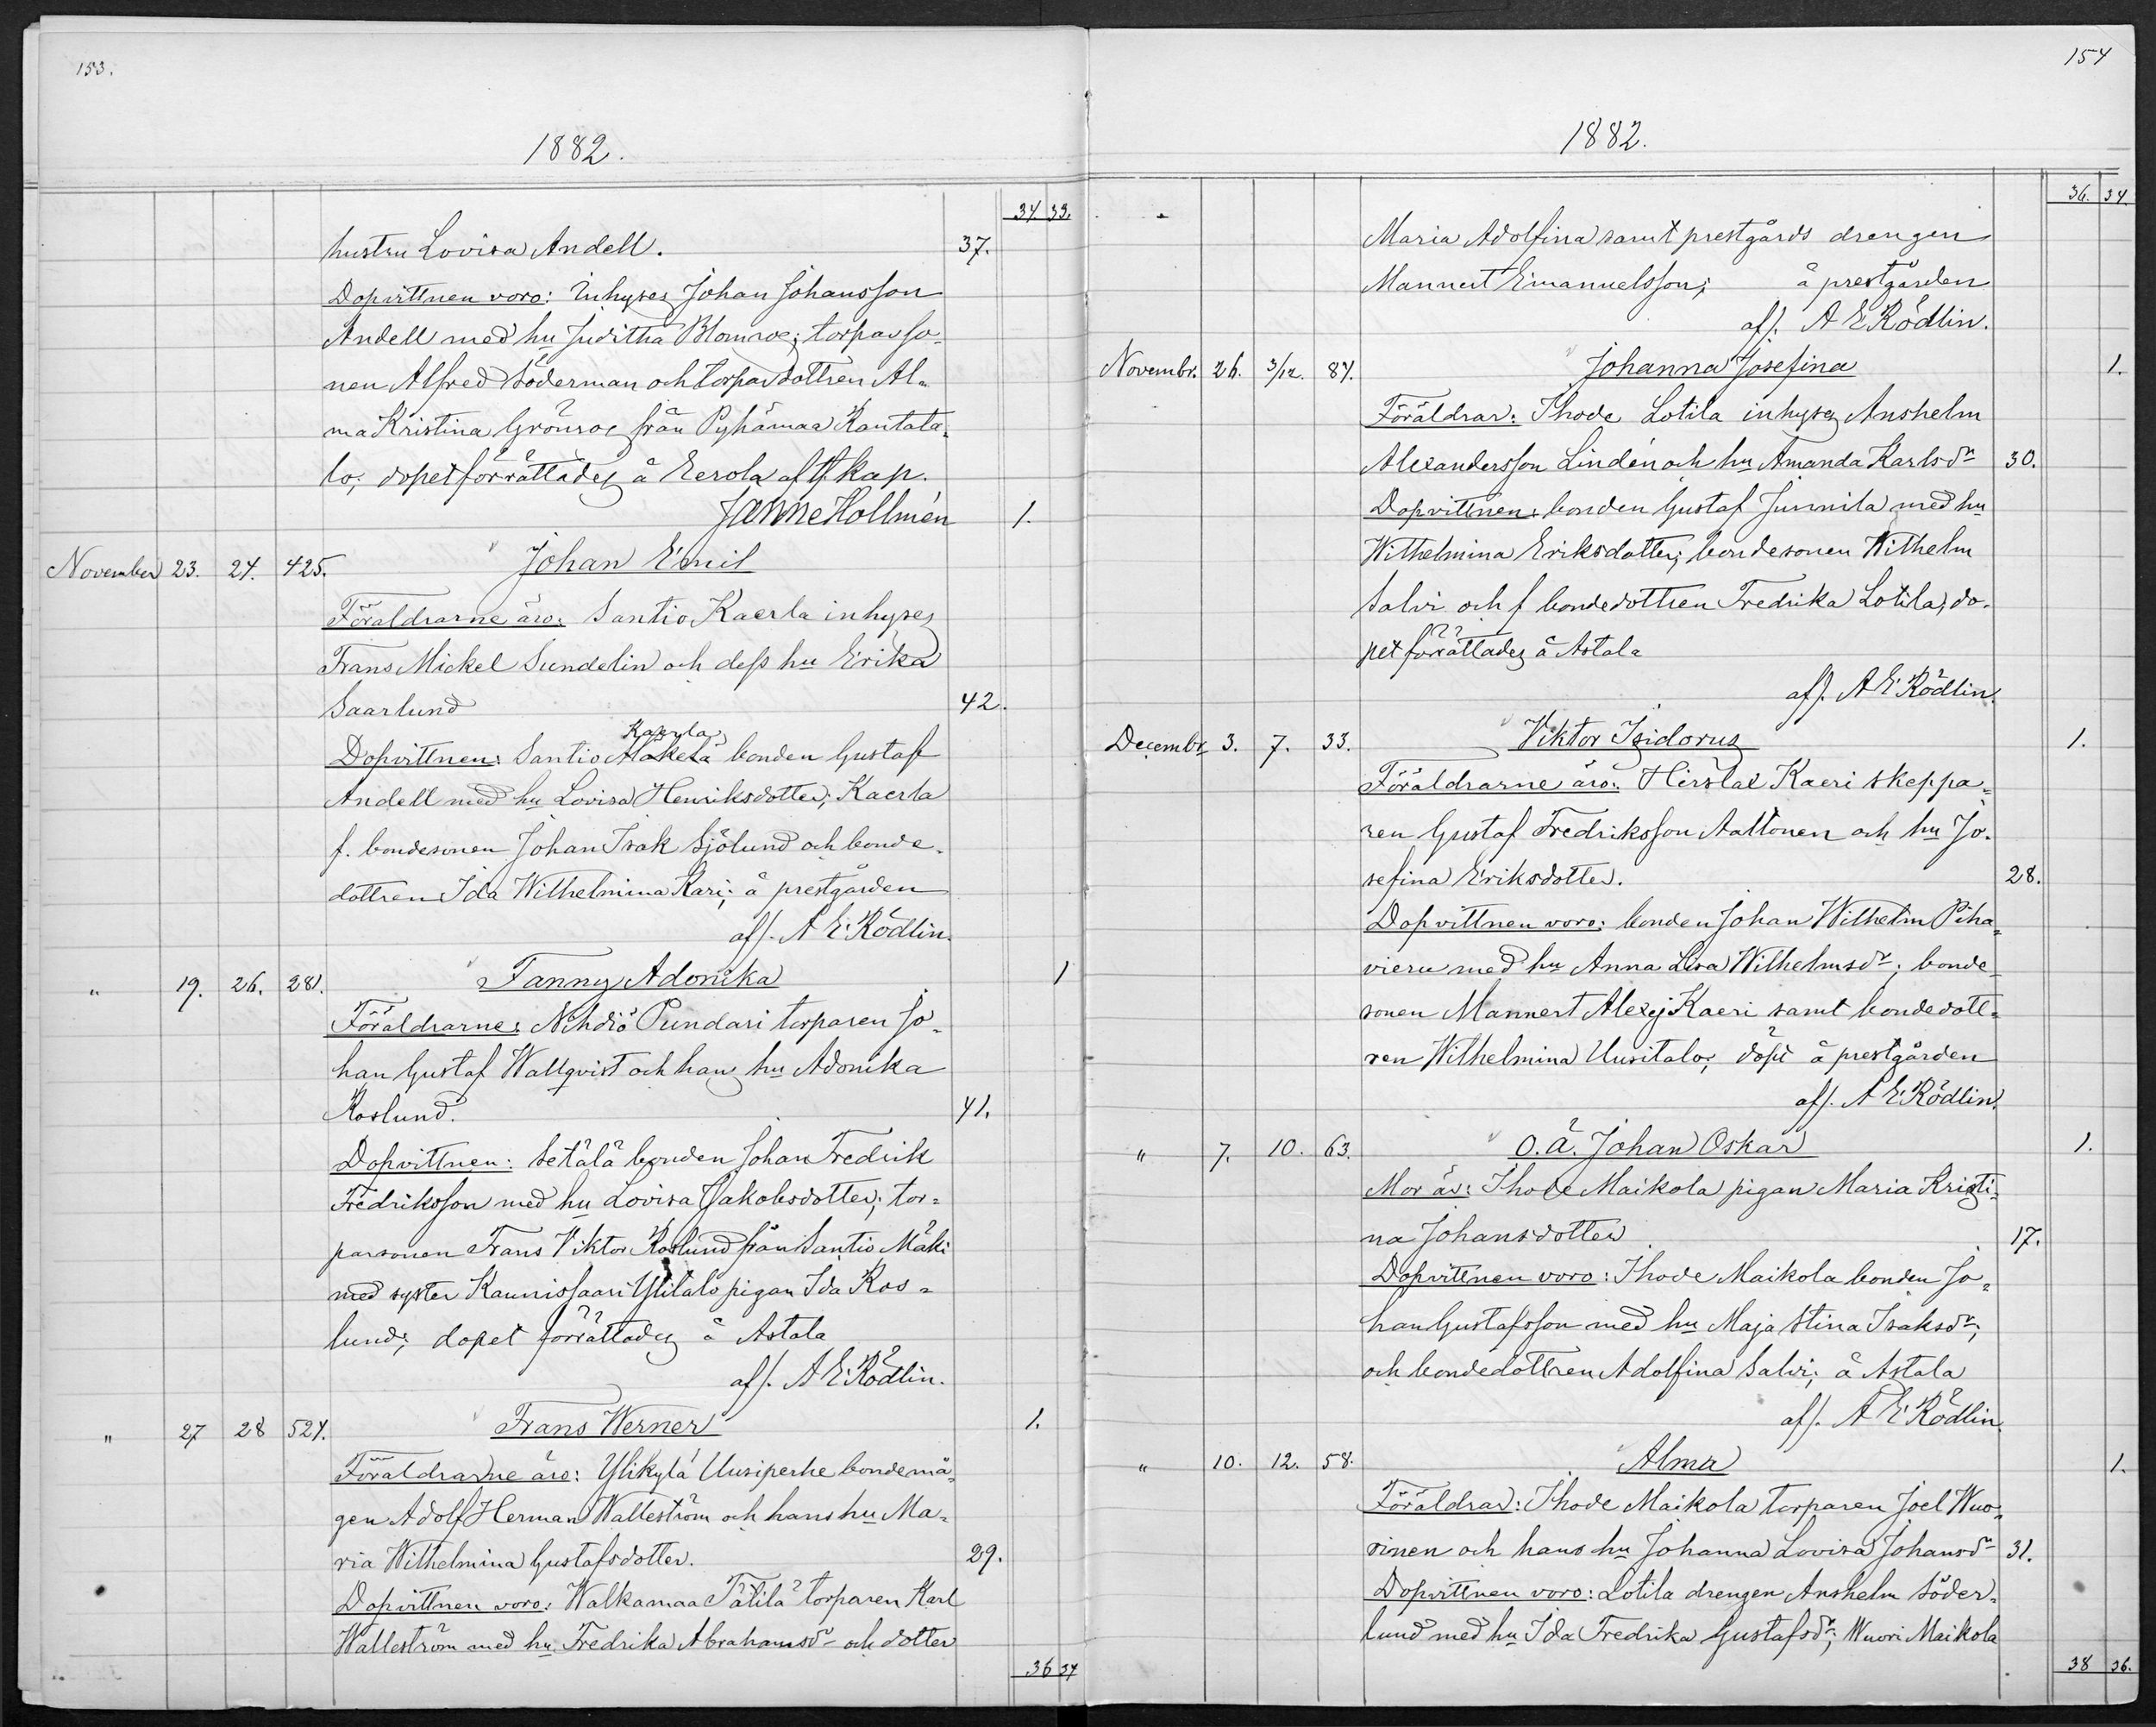 153.
1882.
34 33.
hustru Lovisa Andell. 37.
Dopvittnen voro: Inhyses Johan Johansson
Andell med hu Juditha Blomroe; torparso-
nen Alfred Söderman och torpardottren Al-
ma Kristina Grönroe från Pyhämaa Kantata-
lo; dopet förrättades å Eerola af tf kap.
Janne Hollmén 1.
November 23. 24. 425. Johan Emil
Föräldrarne äro: Santio Kaerla inhyses
Frans Mickel Sundelin och dess hu Erika
Saarlund 42.
Kaerla
Dopvittnen: Santio Mäkelä bonden Gustaf
Andell med hu Lovisa Henriksdotter; Kaerla
f. bondesonen Johan Isak Sjölund och bonde-
dottren Ida Wilhelmina Kari; å prestgården
af J. A E Rödlin.
" 19. 26. 281. Fanny Adonika 1
Föräldrarne: Nihdiö Pundari torparen Jo-
han Gustaf Wallqvist och hans hu Adonika
Roslund. 41.
Dopvittnen: Setälä bonden Johan Fredrik
Fredriksson med hu Lovisa Jakobsdotter; tor-
parsonen Frans Viktor Roslund från Santio Mäki
med syster Kaunissaari Ylitalo pigan Ida Ros-
lund; dopet förrättades å Astala
af J. A E Rödlin.
" 27 28 524. Frans Werner 1.
Föräldrarne äro: Ylikylä Uusiperhe bondemå-
gen Adolf Herman Walleström och hans hu Ma-
ria Wilhelmina Gustafsdotter. 29.
Dopvittnen voro: Walkamaa Tätilä torparen Karl
Walleström med hu Fredrika Abrahamsdr och dotter
36 34
154
1882.
36. 34.
Maria Adolfina samt prestgårds drengen
Mannert Emanuelsson; å prestgården
af J. A E Rödlin.
Novembr. 26. 3/12. 84. Johanna Josefina 1.
Föräldrar: Ihode Lotila inhyses Anshelm
Alexandersson Lindén och hu Amanda Karlsdr 30.
Dopvittnen: bonden Gustaf Junnila med hu
Wilhelmina Eriksdotter; bondesonen Wilhelm
Salvi och f bondedottren Fredrika Lotila; do-
pet förrättades å Astala
af J. A E Rödlin.
Decembr 3. 7. 33. Viktor Isidorus 1.
Föräldrarne äro: Hirslax Kaeri skeppa-
ren Gustaf Fredriksson Aaltonen och hu Jo-
sefina Eriksdotter. 28.
Dopvittnen voro: bonden Johan Wilhelm Piha-
vieru med hu Anna Lisa Wilhelmsdr; bonde-
sonen Mannert Alexej Kaeri samt bondedott-
ren Wilhelmina Uusitalo; döpt å prestgården
af J. A E Rödlin.
" 7. 10. 63. O.ä. Johan Oskar 1.
Mor är: Ihode Maikola pigan Maria Kristi-
na Johansdotter 17.
Dopvittnen voro: Ihode Maikola bonden Jo-
han Gustafsson med hu Maja Stina Isaksdr;
och bondedottren Adolfina Salvi; å Astala
af J. A E Rödlin.
" 10. 12. 58. Alma 1.
Föräldrar: Ihode Maikola torparen Joel Wuo-
rinen och hans hu Johanna Lovisa Johansdr 31.
Dopvittnen voro: Lotila drengen Anshelm Söder-
lund med hu Ida Fredrika Gustafsdr; Wuori Maikola
38 36.